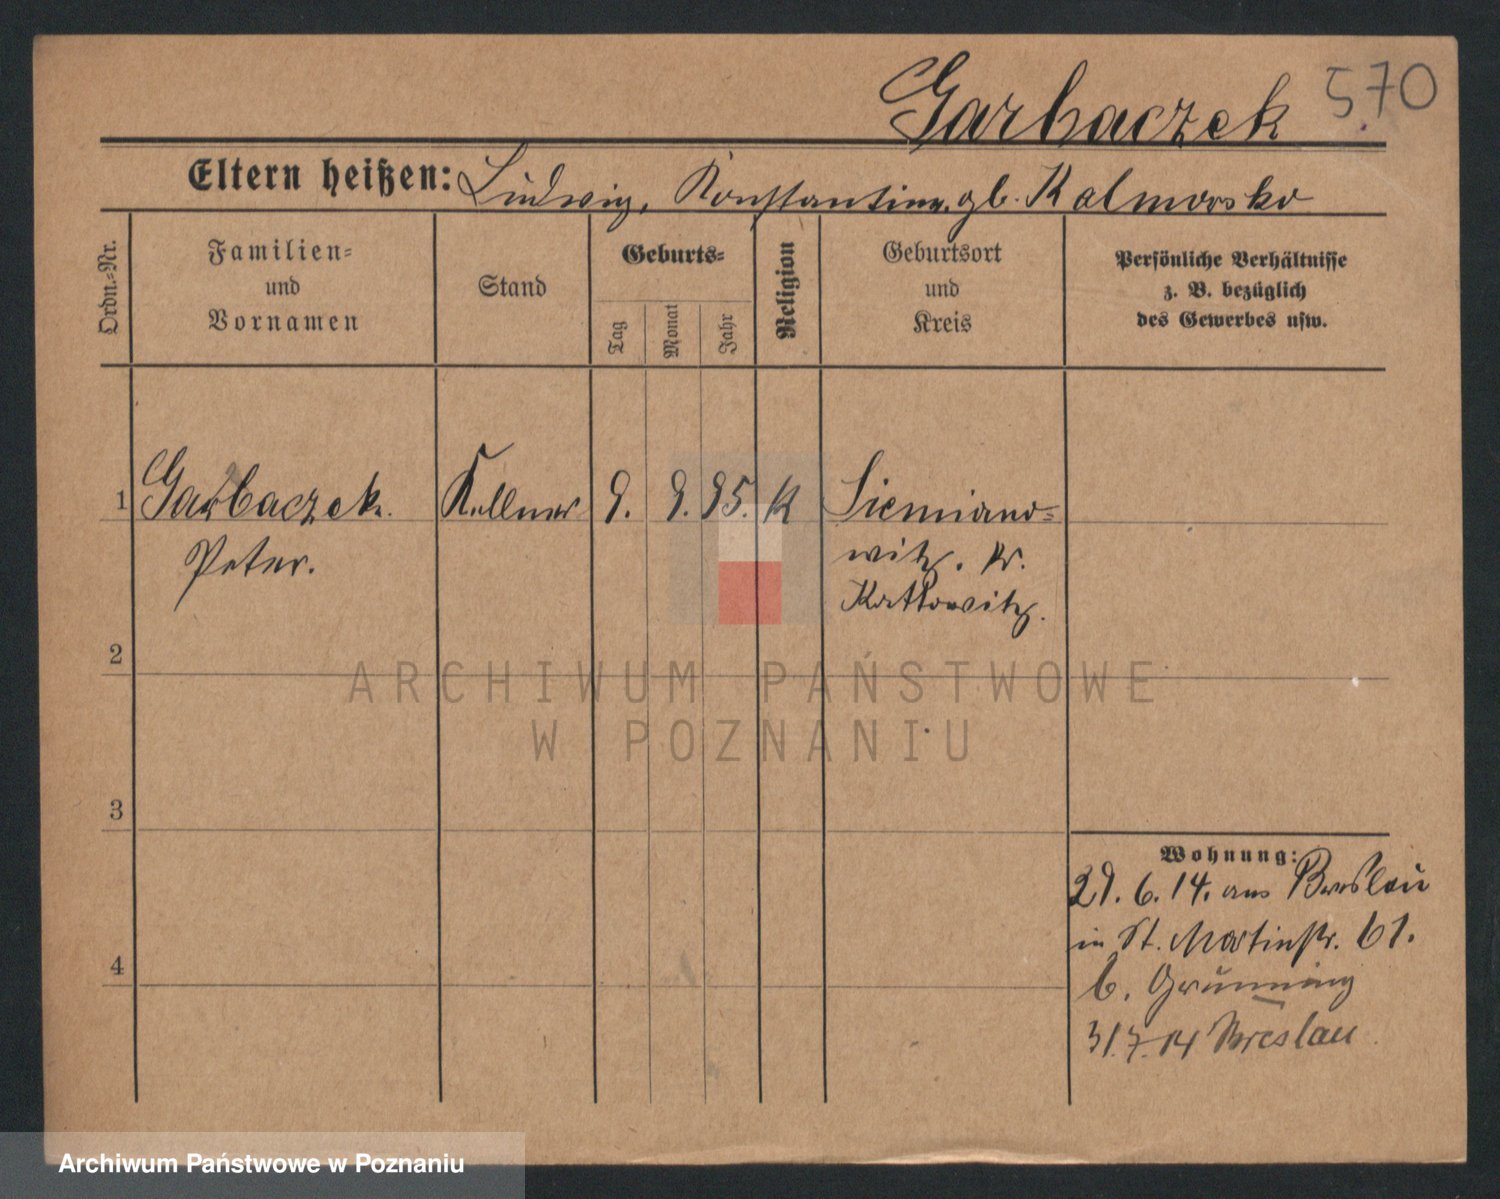 Garbaczek 570
Eltern heißen: Ludwig, Konstantine, gb. Kalmorsko
Ordn.-Nr.
Familien-
und
Vornamen
Stand
Geburts-
Tag
Monat
Jahr
Religion
Geburtsort
und
Kreis
Persönliche Verhältnisse
z. B. bezüglich
des Gewerbes usw.
1 Garbaczek. Kellner 9. 9. 95. K Siemiano-
Peter. witz, Kr.
Kattowitz.
2
3
4
Wohnung:
29. 6. 14. aus Breslau
in St. Martinstr. 61.
b. Grünning
31.7.14 Breslau
ARCHIWUM PAŃSTWOWE
W POZNANIU
Archiwum Państwowe w Poznaniu